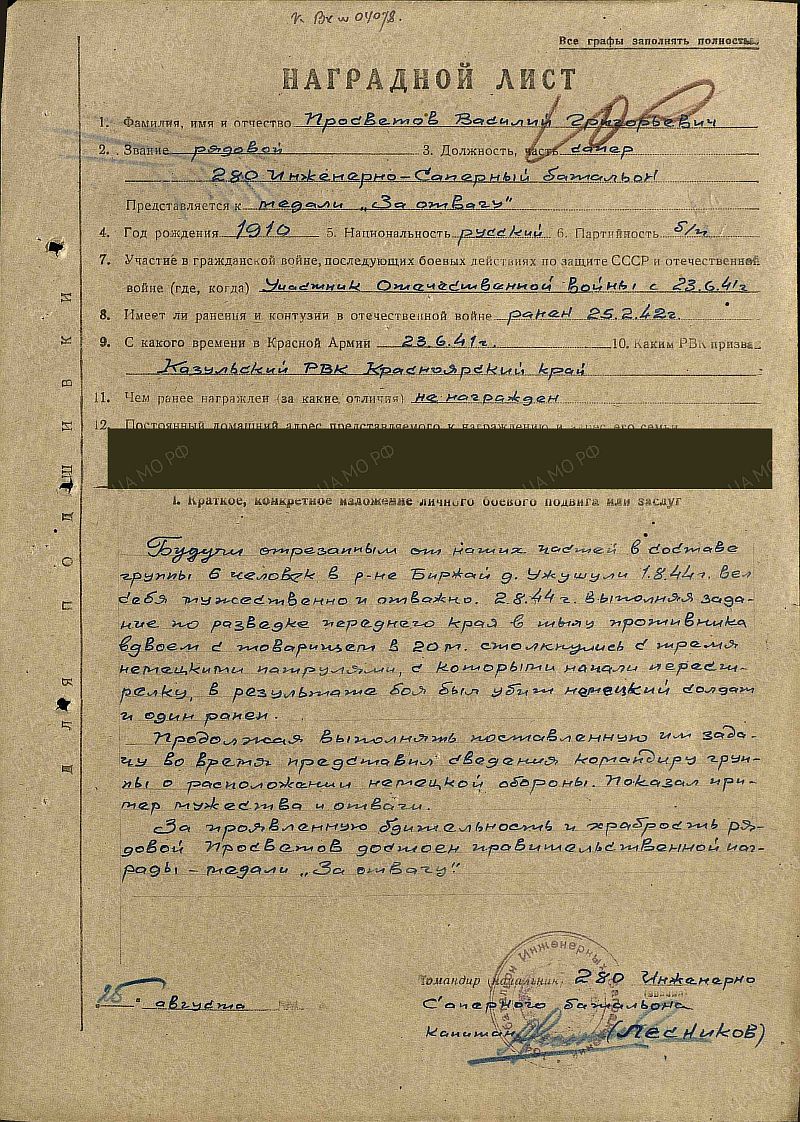 к Вх № 04078.
Все графы заполнять полностью
НАГРАДНОЙ ЛИСТ
1. Фамилия, имя и отчество Просветов Василий Григорьевич
2. Звание рядовой 3. Должность, часть сапер
280 Инженерно-Саперный батальон
Представляется к медали „За отвагу"
4. Год рождения 1910 5. Национальность русский 6. Партийность б/п
7. Участие в гражданской войне, последующих боевых действиях по защите СССР и отечественной
войне (где, когда) Участник Отечественной войны с 23.6.41г
8. Имеет ли ранения и контузии в отечественной войне ранен 25.2.42г.
9. С какого времени в Красной Армии 23.6.41г. 10. Каким РВК призва
Казульский РВК Красноярский край
11. Чем ранее награжден (за какие отличия) не награжден
12. Постоянный домашний адрес представляемого к награждению и адрес его семьи
I. Краткое, конкретное изложение личного боевого подвига или заслуг
Будучи отрезанным от наших частей в составе
группы 6 человек в р-не Биржай д. Ужушули 1.8.44г. вел
себя мужественно и отважно. 2.8.44г. выполняя зада-
ние по разведке переднего края в тылу противника
вдвоем с товарищем в 20 м. столкнулись с тремя
немецкими патрулями, с которыми начали перест-
релку, в результате боя был убит немецкий солдат
и один ранен.
Продолжая выполнять поставленную им зада-
чу во время представил сведения командиру груп-
пы о расположении немецкой обороны. Показал при-
мер мужества и отваги.
За проявленную бдительность и храбрость ря-
довой Просветов достоен правительственной наг-
рады - медали „За отвагу".
Командир (начальник) 280 Инженерно
25 августа
Саперного батальона
капитан (Лесников)
ДЛЯ ПОДШИВКИ